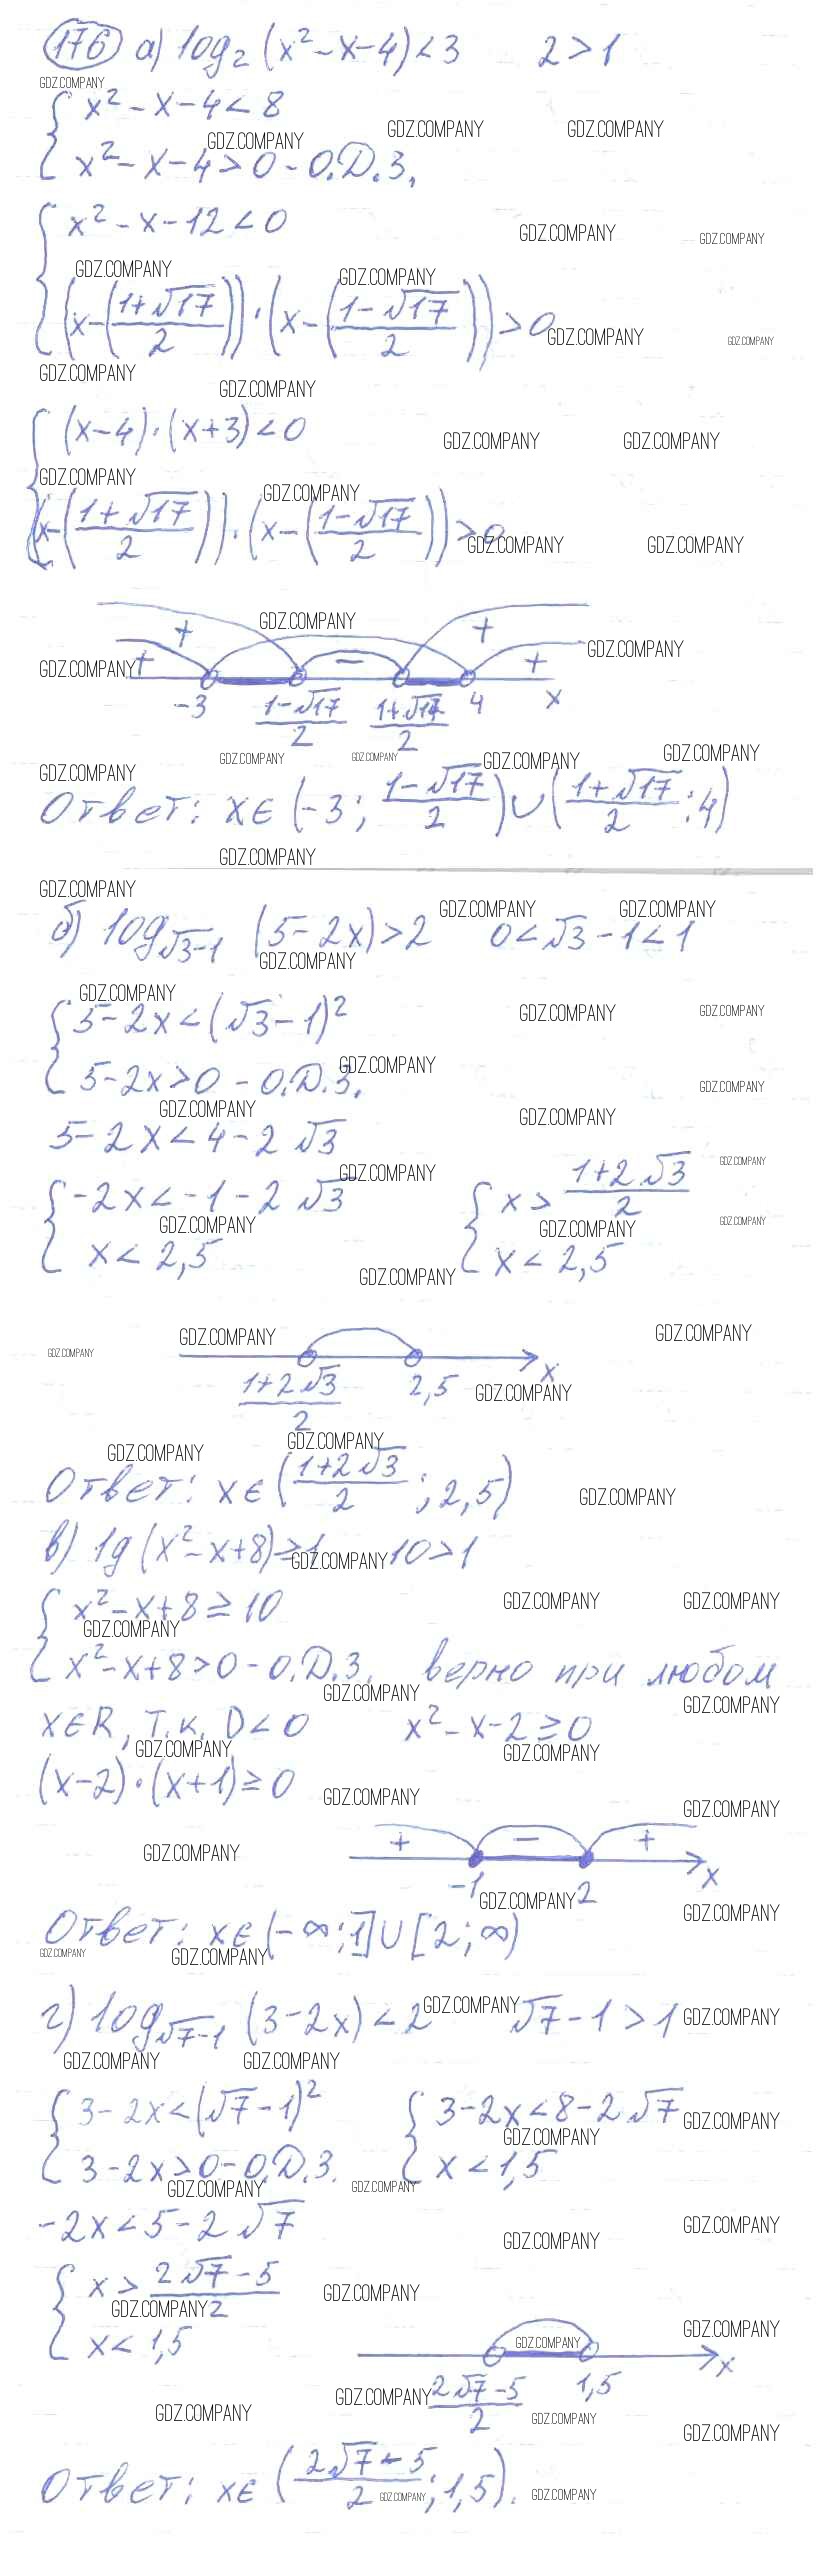 176 а) log₂ (x² - x - 4) < 3 2 > 1
{ x² - x - 4 < 8
{ x² - x - 4 > 0 - О.Д.З.
{ x² - x - 12 < 0
{ (x - ((1+√17)/2)) · (x - ((1-√17)/2)) > 0
{ (x-4) · (x+3) < 0
{ (x - ((1+√17)/2)) · (x - ((1-√17)/2)) > 0
+ + - + +
-3 (1-√17)/2 (1+√17)/2 4 x
Ответ: x ∈ (-3; (1-√17)/2) ∪ ((1+√17)/2; 4)
б) log_{√3-1} (5-2x) > 2 0 < √3 - 1 < 1
{ 5-2x < (√3-1)²
{ 5-2x > 0 - О.Д.З.
5-2x < 4-2√3
{ -2x < -1-2√3 { x > (1+2√3)/2
{ x < 2,5 { x < 2,5
(1+2√3)/2 2,5 x
Ответ: x ∈ ((1+2√3)/2; 2,5)
в) lg (x² - x + 8) ≥ 1 10 > 1
{ x² - x + 8 ≥ 10
{ x² - x + 8 > 0 - О.Д.З. верно при любом
x ∈ R, т.к. D < 0 x² - x - 2 ≥ 0
(x-2) · (x+1) ≥ 0
+ - +
-1 2 x
Ответ: x ∈ (-∞; 1] ∪ [2; ∞)
г) log_{√7-1} (3-2x) < 2 √7 - 1 > 1
{ 3-2x < (√7-1)² { 3-2x < 8-2√7
{ 3-2x > 0 - О.Д.З. { x < 1,5
-2x < 5-2√7
{ x > (2√7-5)/2
{ x < 1,5
(2√7-5)/2 1,5 x
Ответ: x ∈ ((2√7-5)/2; 1,5).
GDZ.COMPANY